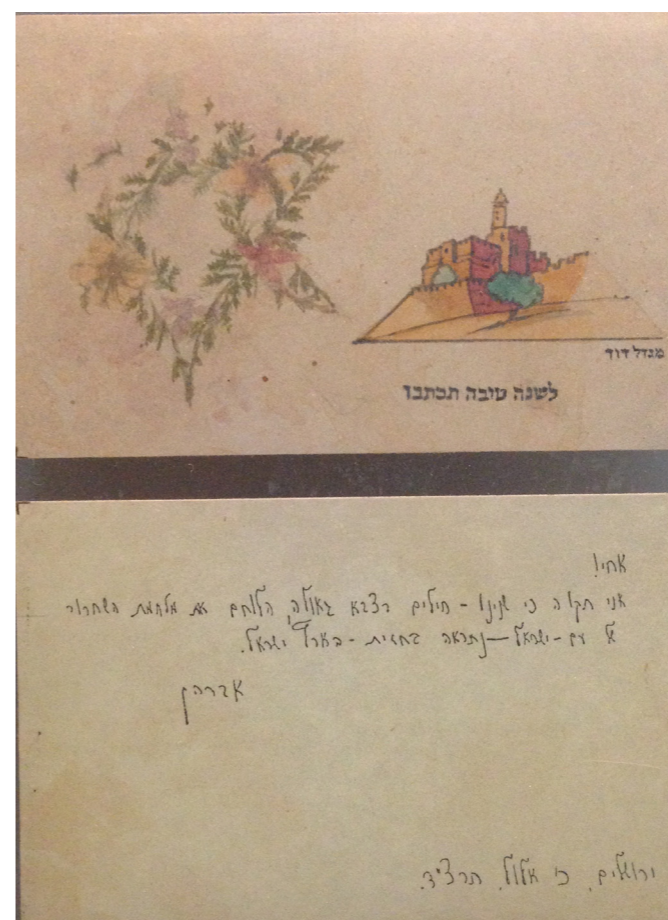 מגדל דוד
לשנה טובה תכתבו
אחי!
אני תקוה כי שנינו - חילים בצבא גאולה, הלוחם את מלחמת השחרור
של עם - ישראל — נתראה בחזית - בארץ ישראל.
אברהם
ירושלים, כ' אלול, תרצ"ד.